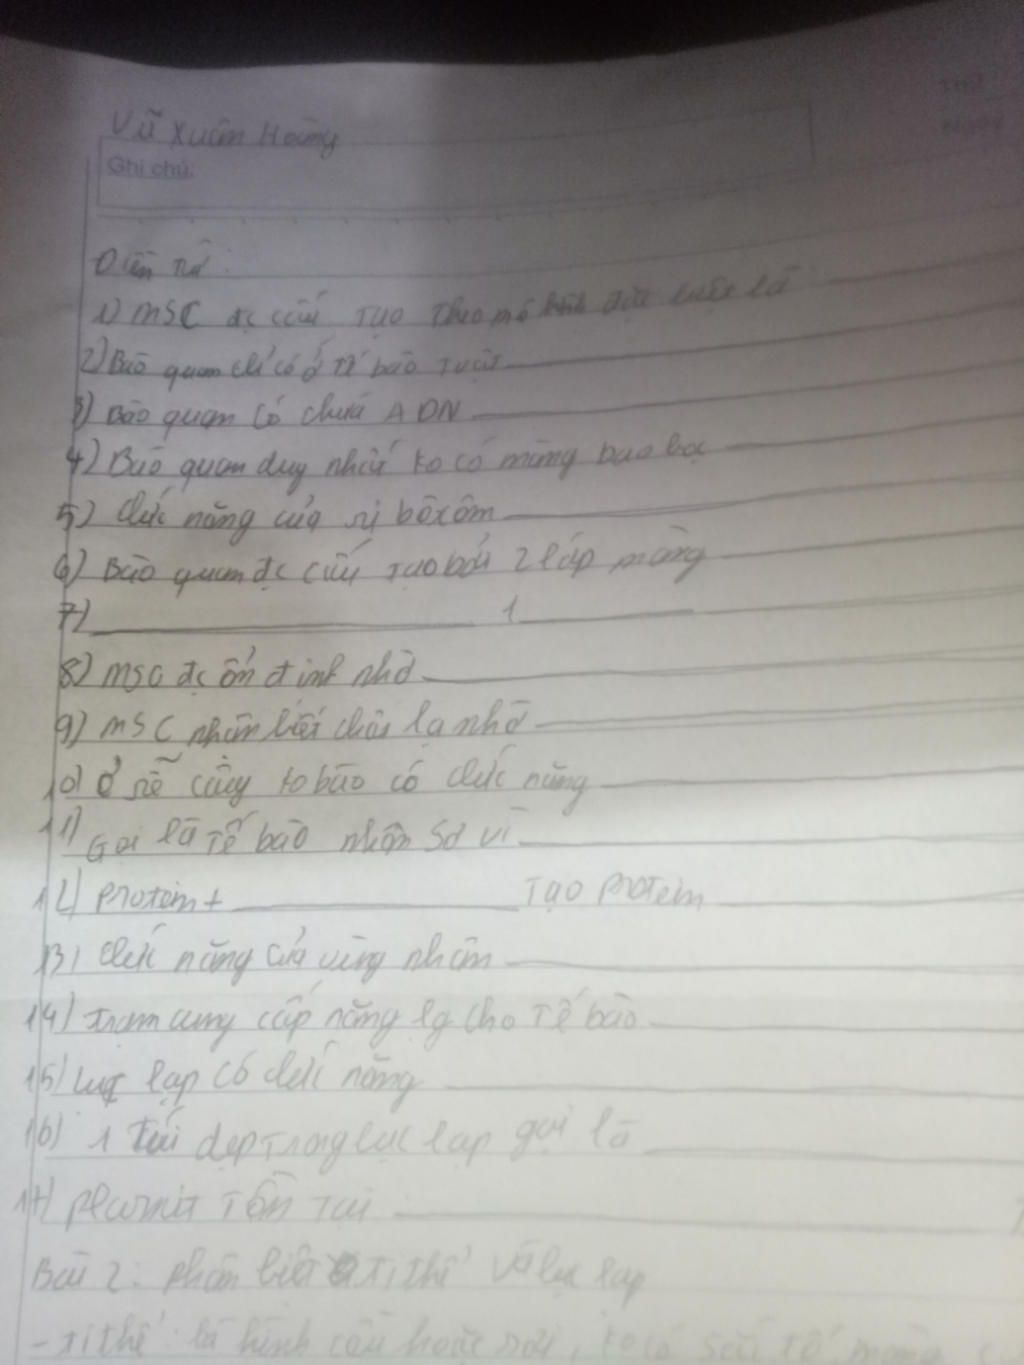 Vũ Xuân Hoàng
Ghi chú:
Thứ
Ngày
Điền từ
1) MSC đc cấu tạo theo mô hình được
2) Bào quan chỉ có ở tế bào
3) Bào quan có chứa ADN
4) Bào quan duy nhất ko có màng bao bọc
5) Chức năng của ribôxôm
6) Bào quan đc cấu tạo bởi 2 lớp màng
7) 1
8) MSC đc ổn định nhờ
9) MSC nhận biết chất lạ nhờ
10) Ở rễ cây ko bào có chức năng
11) Gọi là tế bào nhân sơ vì
12) Protein + Tạo protein
13) Chức năng của vùng nhân
14) trạm cung cấp năng lg cho tế bào
15) Lục lạp có chức năng
16) 1 túi dẹp trong lục lạp gọi là
17) plasmit tồn tại
Bài 2: phân biệt ti thể và lục lạp
- ti thể: là hình cầu hoặc